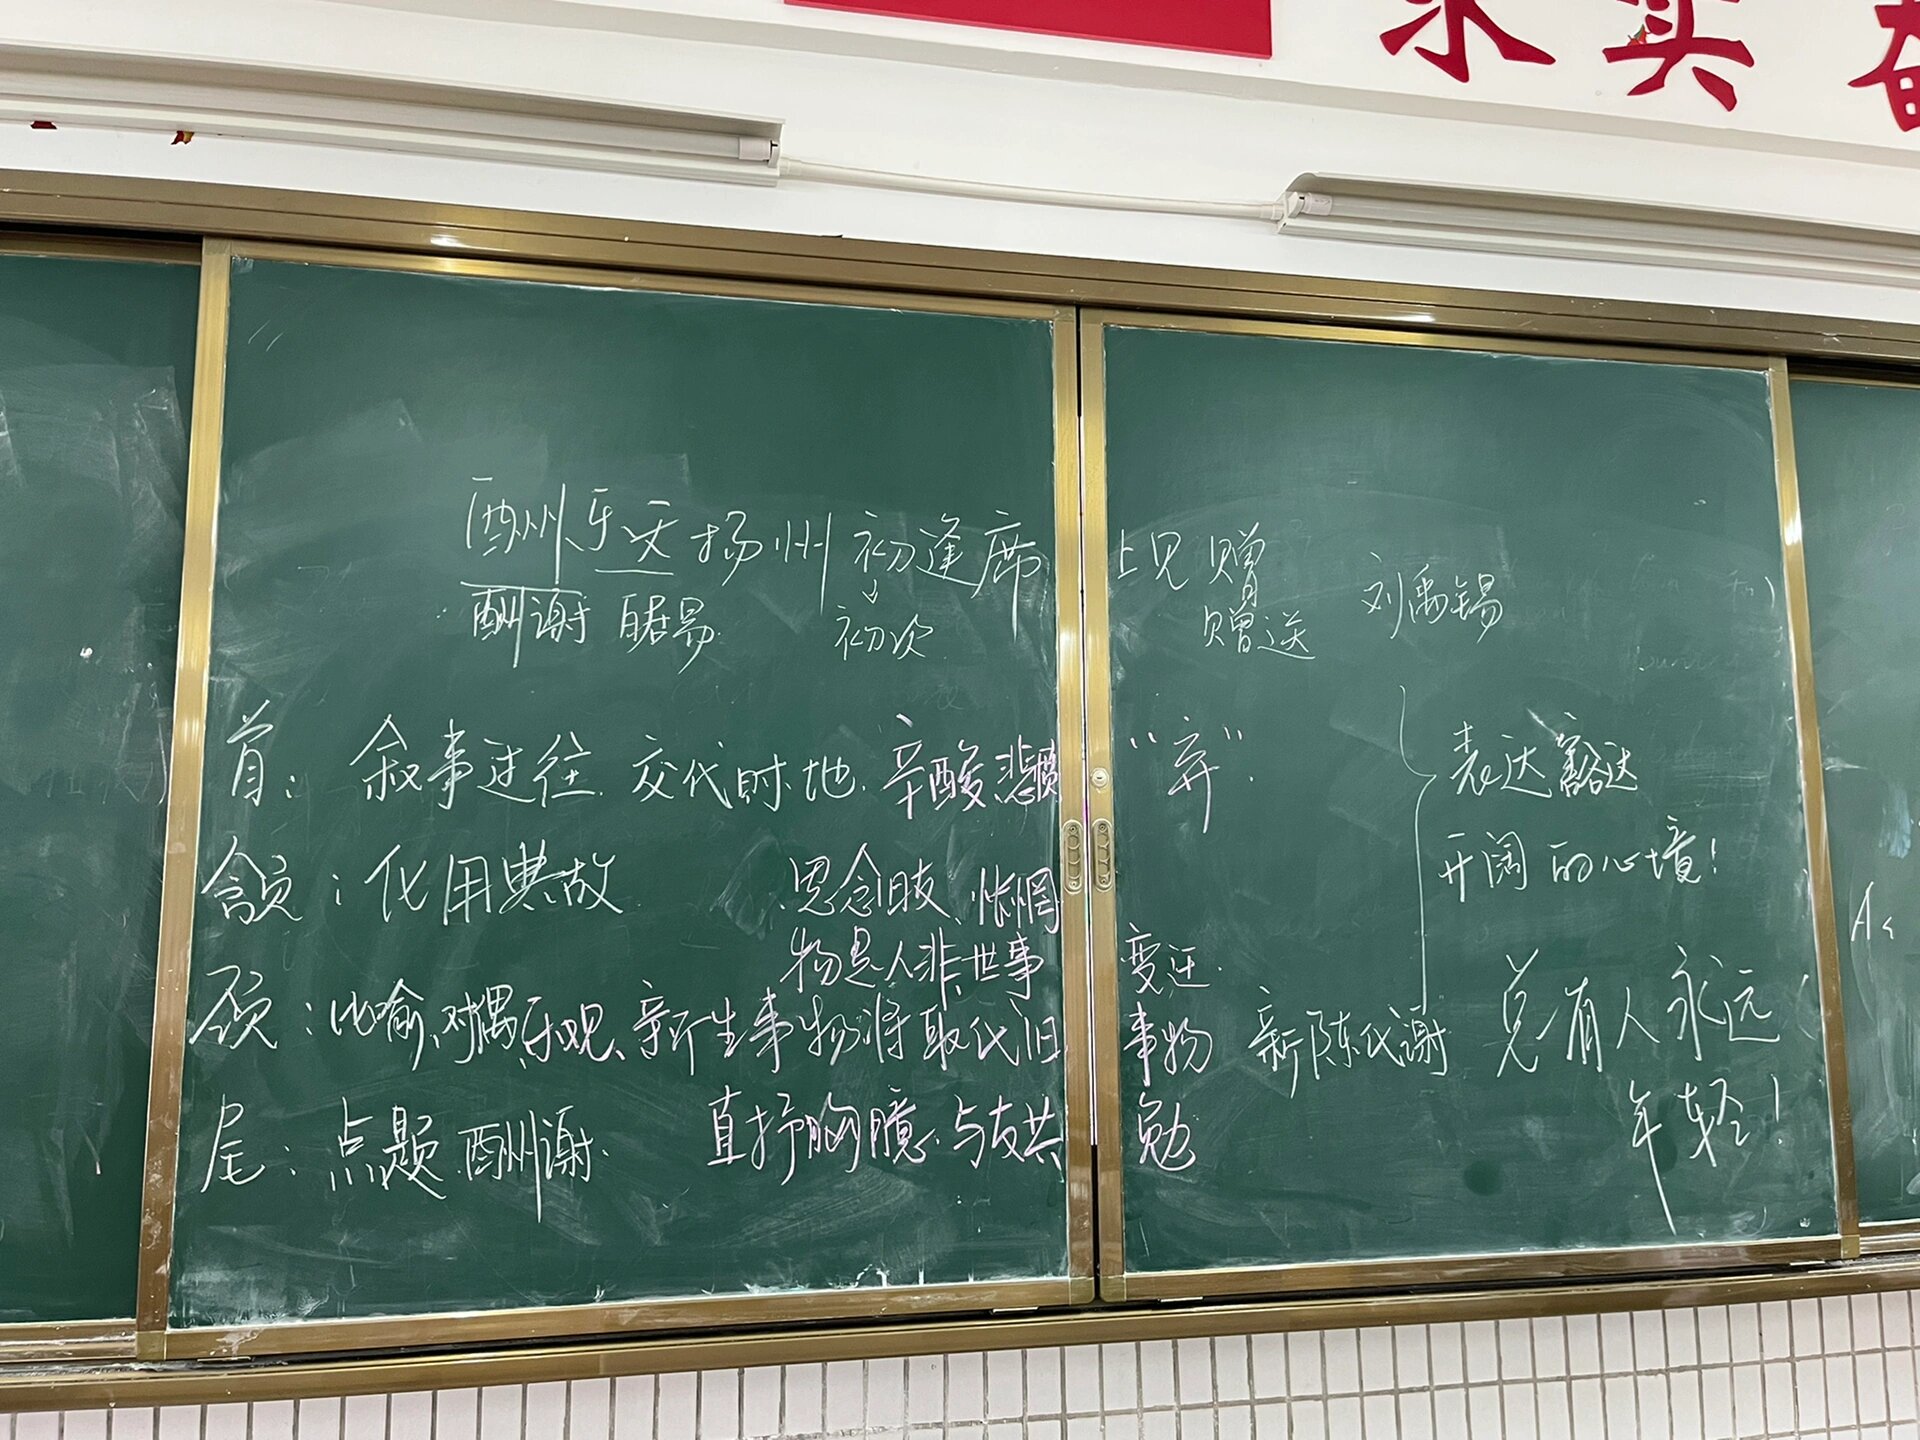 求实
酬乐天扬州初逢席上见赠 刘禹锡
酬谢 白居易 初次 赠送
首：叙事过往.交代时、地.辛酸、悲愤 “弃”. 表达豁达
颔：化用典故 思念旧友、怅惘 开阔的心境！
物是人非、世事变迁.
颈：比喻、对偶、乐观、新生事物将取代旧事物 新陈代谢 总有人永远
年轻！
尾：点题.酬谢. 直抒胸臆.与友共勉